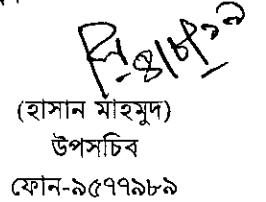 (হাসান মাহমুদ)
উপসচিব
ফোন-৯৫৭৭৯৮৯